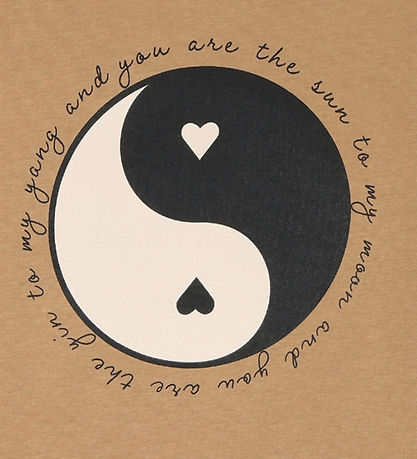 you are the sun to my moon and you are the yin to my yang and